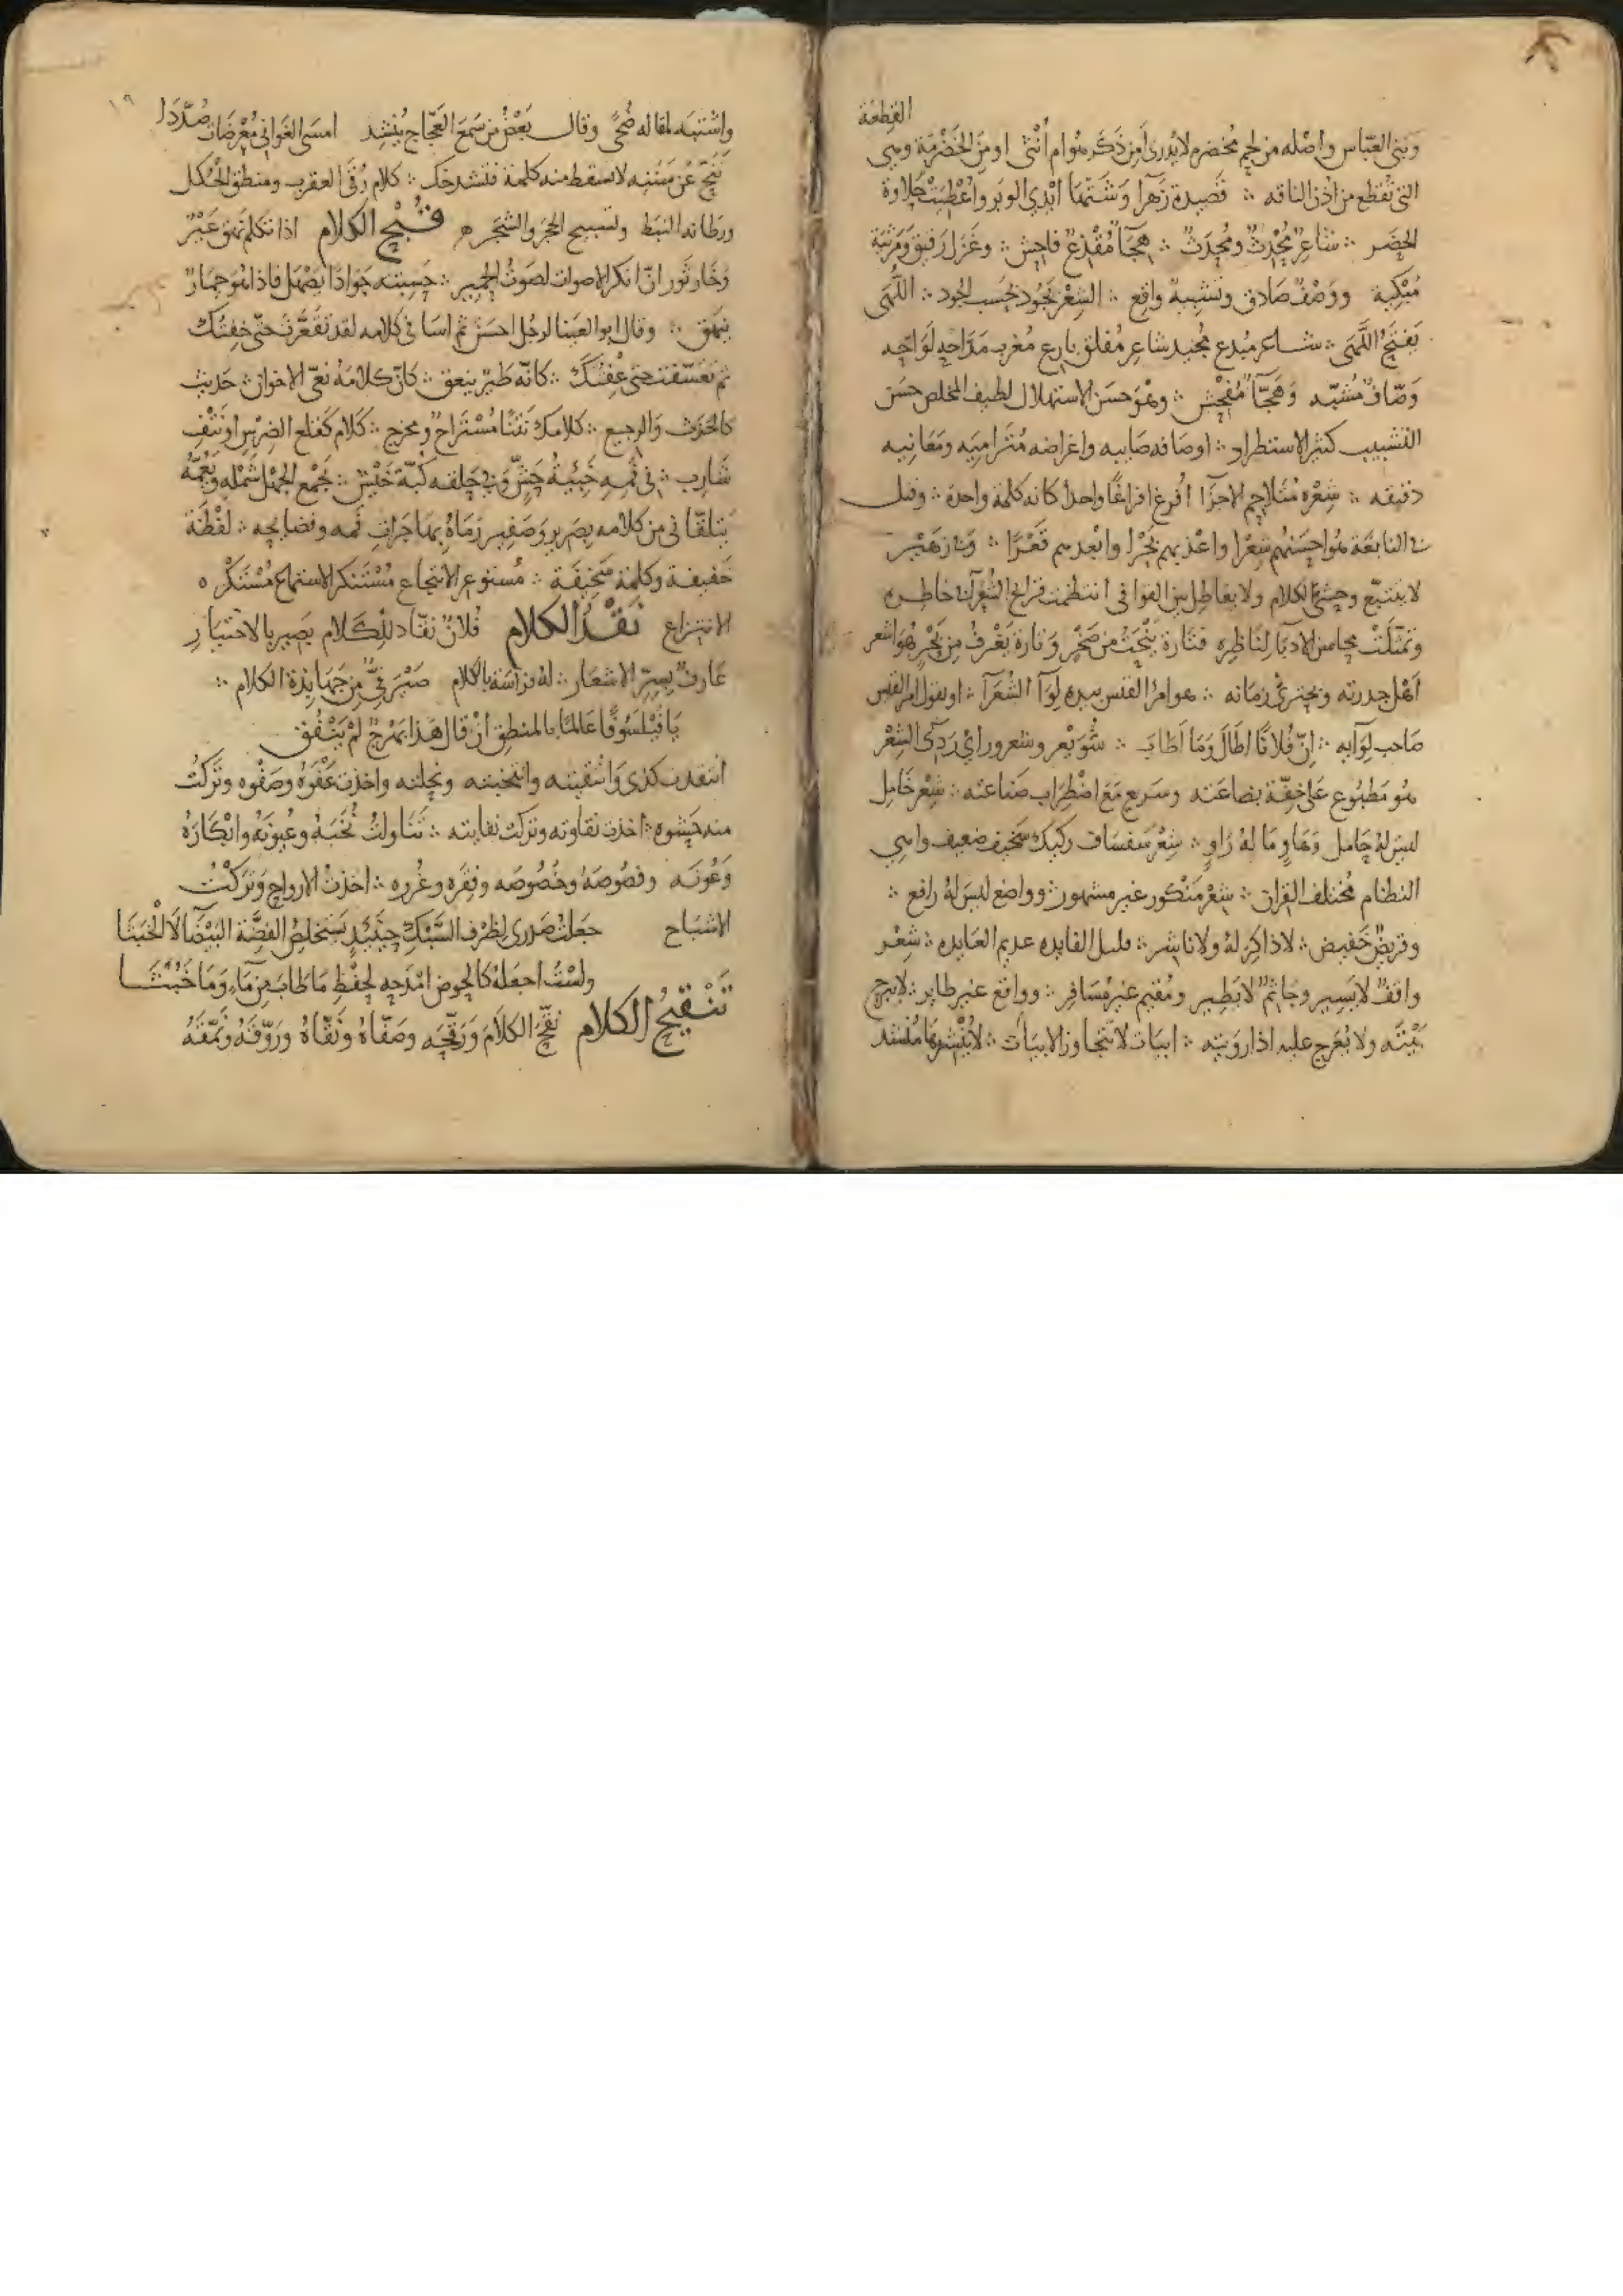 القطعة
وبني العبّاس واصْله من لحم مُخضرم لا يُدرى أمِن ذَكَر هُوام أُنْثى او مِنَ الخَضْرَمة وهي
التى تُقطع من اذُن الناقه ∴ قصيدة زَهْرا وَشَّتْهَا ايْدي الوبَر واُعْطِيَتْ حَلاوة
الحضَر ∴ شاعِرٌ مُحْدِثٌ ومُحْدَثٌ ∴ هجَآءٌ مُقْذعٌ فاحِش ∴ وغَزَل رَقيق وَمَرْثية
مُبْكِية ووَصْفٌ صَادق وتشبِيهٌ واقع ∴ الشِعْر يَجُود بحَسب الجود ∴ اللُّهَى
تفتَحُ اللَّهَى ∴ شاعر مُبدع مُجيد شاعِر مُفلق بارع مُغرب مَدّاحه لَوّاحه
وَصّافٌ مُشبّه وَهَجّآءٌ مُفحِش ∴ وهُوَ حسَن الاستهلال لطيف المخلص حسَن
التشبيب كثير الاستطراد ∴ اوصَافه صَايبه واغراضه مُتَراميَه ومَعَانِيه
دقيقه ∴ شِعْره مُتَلاحِم الاجزَآ اُفرغ افراغًا واحدا كانه كلمة واحدة ∴ وقيل
في النابغَة هُوَ احسَنهُم شِعْرا واعْذبهم بَحْرا وابْعدهم قَعْرًا ∴ وفي زهَيْر
لا يتتبّع وحشيّ الكلام ولا يعاظِل بين القوافى انتظمت قرايح الشُعَرآء خاطِره
وتمثّلَتْ محاسن الادبَآ لِنَاظِرِه فتَارة يَنْحِتُ من صَخْر وَتارة يَغْرفُ مِن بَحْر هُوَ اشعر
اَهْل جدرته وبحترىّ زمَانه ∴ هو امرؤ القيس بيده لِوَآ الشُعَرآ ∴ او يقول امرؤ القيس
صَاحب لِوَآيه ∴ اِنّ فُلانًا اطَالَ وَمَا اَطَابَ ∴ شُوَيْعر وشعرور اي رَدِىّ الشِعْر
هُو مَطبُوع عَلى خِفّة بضاعَته وسَريع مَعَ اضْطِرَاب صَناعته ∴ شِعْر خَامِل
ليسَ لهُ حَامِل وَهَاوٍ مَا لهُ رَاوٍ ∴ شِعْر سَفسَاف ركيك سَخيف ضعيف واهي
النظام مُختلف القِران ∴ شِعْر مَنْكور غير مشهور ∴ وواضع ليسَ لهُ رافع ∴
وقريضٌ خَفيض ∴ لا ذاكِر لهُ ولا ناشر ∴ قليل الفايده عديم العَايده ∴ شِعْر
واقفٌ لا يَسِير وجَاثِمٌ لا يَطِير ومُقيم غيْر مُسَافِر ∴ وواقع غير طاير ∴ لا يرج
بَيْتَه ولا يُعْرَج عليه اذا رويته ∴ ابيَات لا تتجاوز الابيَات ∴ لا يُنْشِرُهَا مُنْشد
١٩
واشْتبَه لمقاله ضُحىً وقال بَعْضُ من سَمعَ العَجّاج يُنشِد امسَى الغَوانى مُعْرضَات صُدّدَا
تَنَحّ عَنْ سَنَنِه لا تسقط منه كلمة فتشدخك ∴ كلام رُقَى العقرب ومنطق الحُكل
ورَطانه النبَط وتسبيح الحجَر والشجَر م قُبْحُ الكلام اذا تكلم نَهَق عَيْرٌ
وخَار ثَور انّ انكر الاصوات لصَوْتُ الحَمِير ∴ حَسِبته جَوَادًا يَصْهَل فاذا هُوَ حِمَارٌ
ينهق ∴ وقال ابو العَينا لرجُل احسَنَ ثم اسَا في كلامه لقد تقَعَّرْت حتى خِفْتُكَ
ثم تعسّفت حتى عِفْتُكَ ∴ كانّه طَيْر ينعق ∴ كانّ كلامَهُ نَعىّ الاخوان ∴ حَديث
كالحَدَث وَالرجيع ∴ كلامك نَتنًا مُسْتَرَاح ومخرج ∴ كَلام كقَلع الضِرْس او نَتْفِ
شَارِب ∴ في فَمِه خَبِيئةُ حَشّ وَفي حَلقه كُبّةُ خَيْش ∴ يَجْمع الجَهْل شَمْله ويَعُمّهُ
يتلقّانى من كلامه بِصَرِير وَصَفِير رَمَاهُ بهَا جَرافِ فَمه وفضايحِه ∴ لَفْظَة
خَفيفة وكلمة سَخِيفَة ∴ مُستوعِر الانتجاع مُسْتَنكر الاستماع مُسْتَنكَرْ ه
الانتزاع نَقْدُ الكلام فُلانٌ نقّاد للِكَلام بَصِير بالاختيَارِ
عَارفٌ بِسِرّ الاشعَار ∴ لهُ فراسَة بالكلام صَيْرَفيٌّ مِن جَهَابِذة الكلام ∴
يَا فَيْلَسُوفًا عَالمًا بالمنطِقِ اِنْ قال هَذا بَهْرَجٌ لمْ يَنْفُقِ
انتقدت كذى وَانتقيته وانتخبته ونخلته واخذت عَفْوَهُ وصَفْوه وتَركتُ
منه حَشوه ∴ اخذت نقاوته وتركت نفايته ∴ تَنَاولتُ نُخَبَهُ وعُيونَهُ وابْكَارَهُ
وَعُونَه وفصُوصَهُ وخُصُوصَه وفِقَره وغُرره ∴ اخذتُ الارواحَ وَتَركْتُ
الاشباح جعَلتُ صَدرى لِظرْف السَّبْك حِينَئِذٍ يَستَخلِصُ الفضّةَ البَيْضَآ لا الخَبَثَا
ولسْتُ اجعَلهُ كالحوض امْدَحه لحِفْظِ مَا طابَ مِن مَآءٍ وَمَا خَبُثَا
تَنْقِيحُ الكلام نقّحَ الكلاَمَ وَرَقّحَه وصَفّاهُ ونَقّاهُ ورَوّقَهُ ونَمّقَهُ